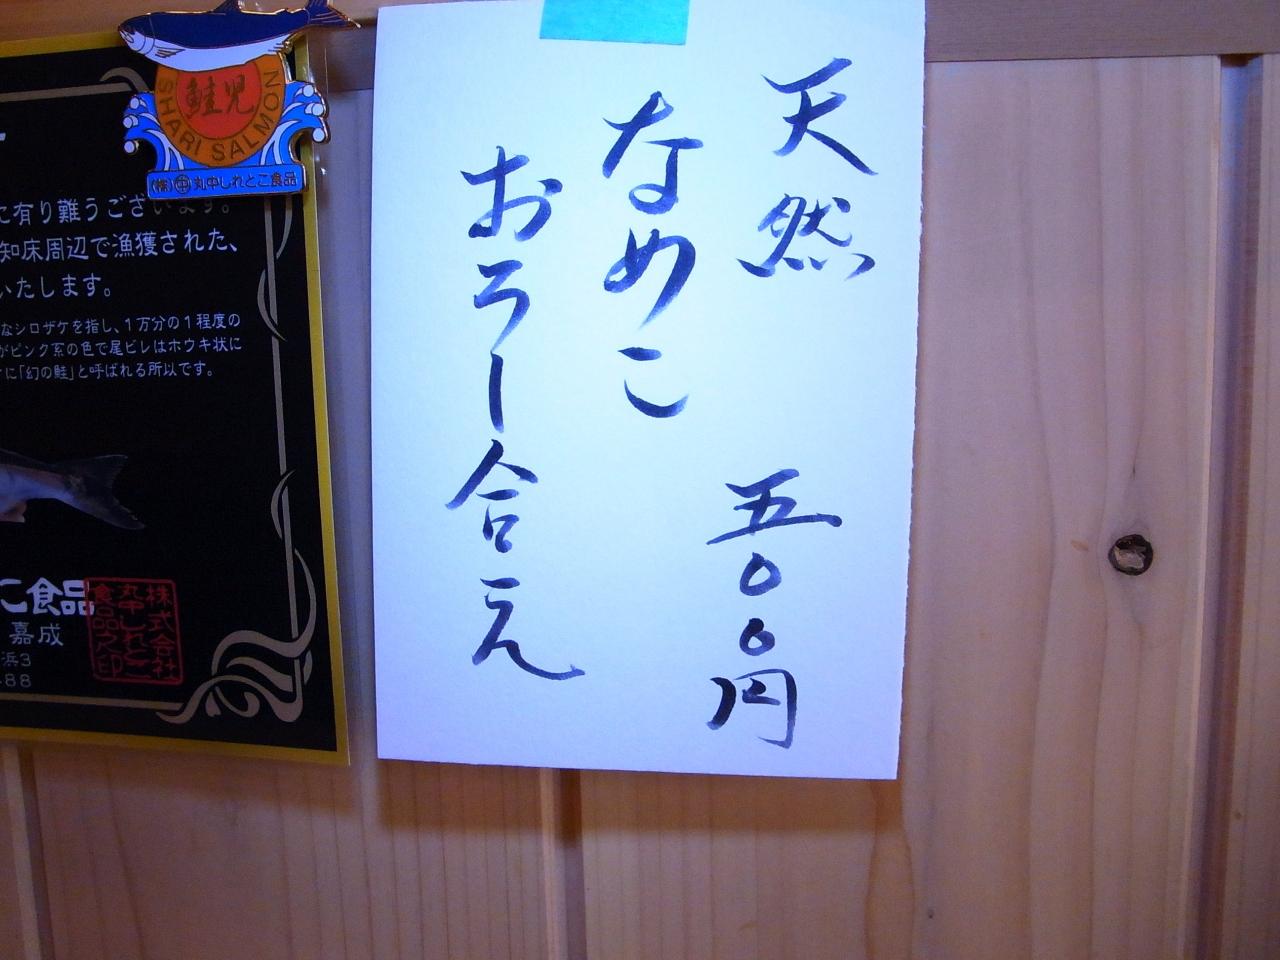 天然
なめこ
おろし合え
五〇〇円
鮭児
SHARI SALMON
(株)中丸中しれとこ食品
に有り難うございます。
知床周辺で漁獲された、
いたします。
なシロザケを指し、1万分の1程度の
がピンク系の色で尾ビレはホウキ状に
に「幻の鮭」と呼ばれる所以です。
こ食品
嘉成
浜3
88
株式会社
丸中しれとこ
食品之印